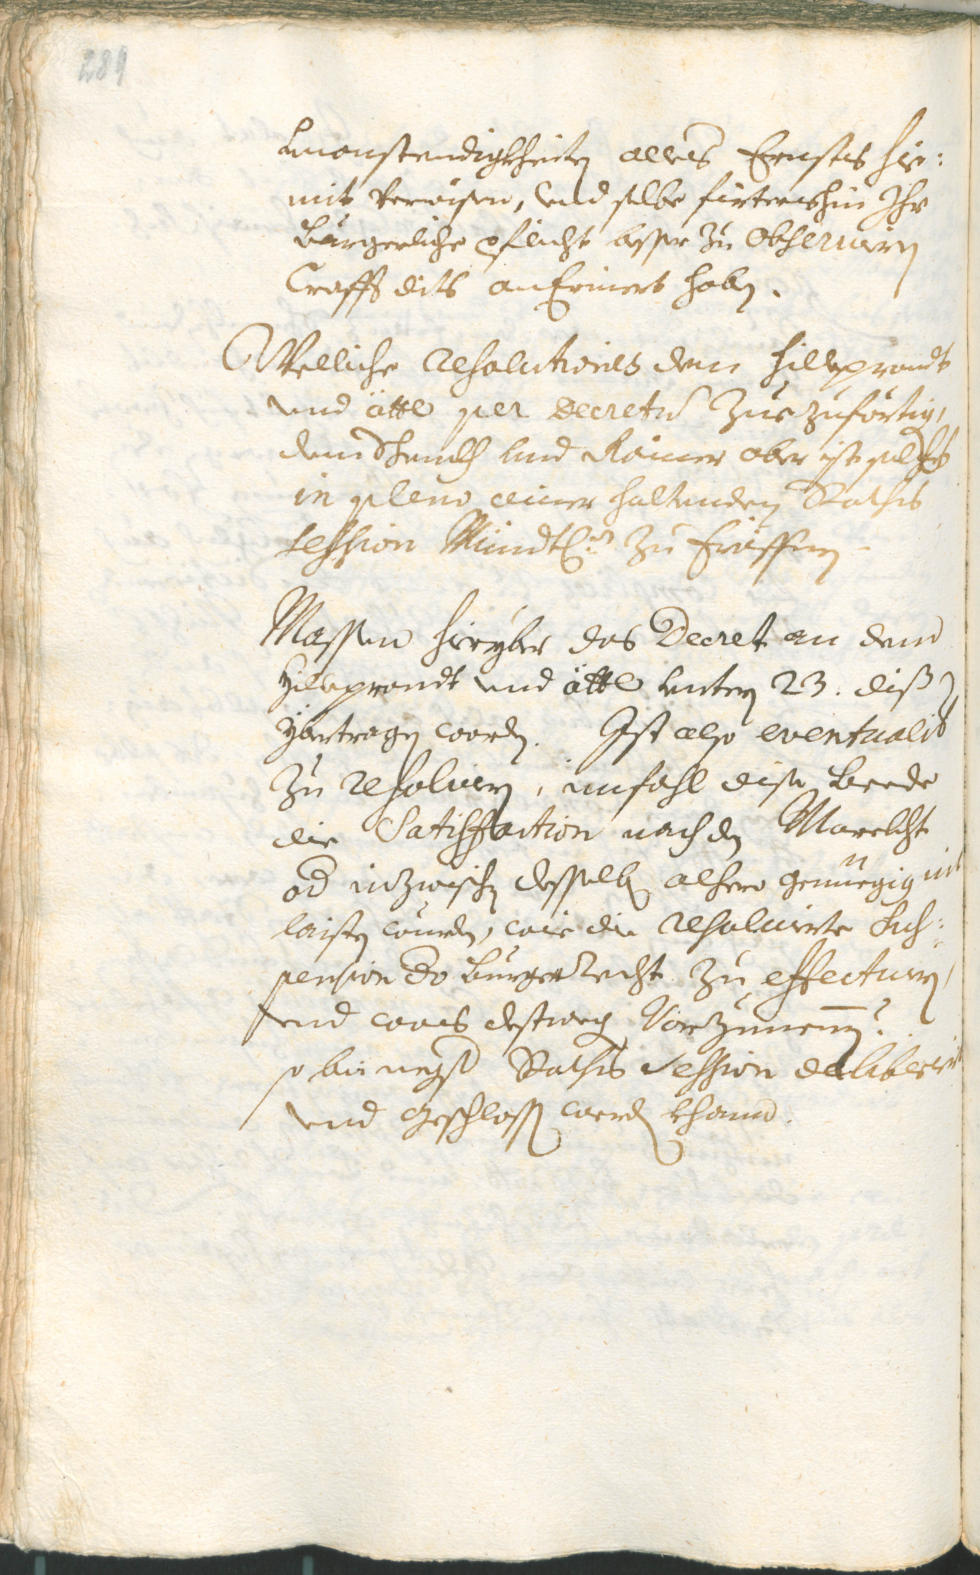 289
Unanstendigkheiten alles Ernsts hie:
mit verwisen, und selbe fürterhin Ihr
Bürgerliche pflicht besser zu Observiern
Crafft dits anerinert haben.
Welliche resolutiones dem Hilleprandt
und ättl per Decretum zuezuförtig,
dem und Rainer aber ist solches
in pleno einer haltenden Raths
session Mündtlich zu eröffnen
Massen hieryber das Decret an dem
Hilleprandt und ättl untern 23. diss
ybertragen worden. Ist also eventualit
zu resolviern, imfahl dise beede
die Satisfaction nach den
od inzwischen desselben alhero genuegig nit
laisten wurden, wie die resolvierte Sus:
pension do burgerrecht zu effectuirn,
und was destweg vorzunemmen?
so bei negst Raths session deliberirt
und geschlossen werden khann.